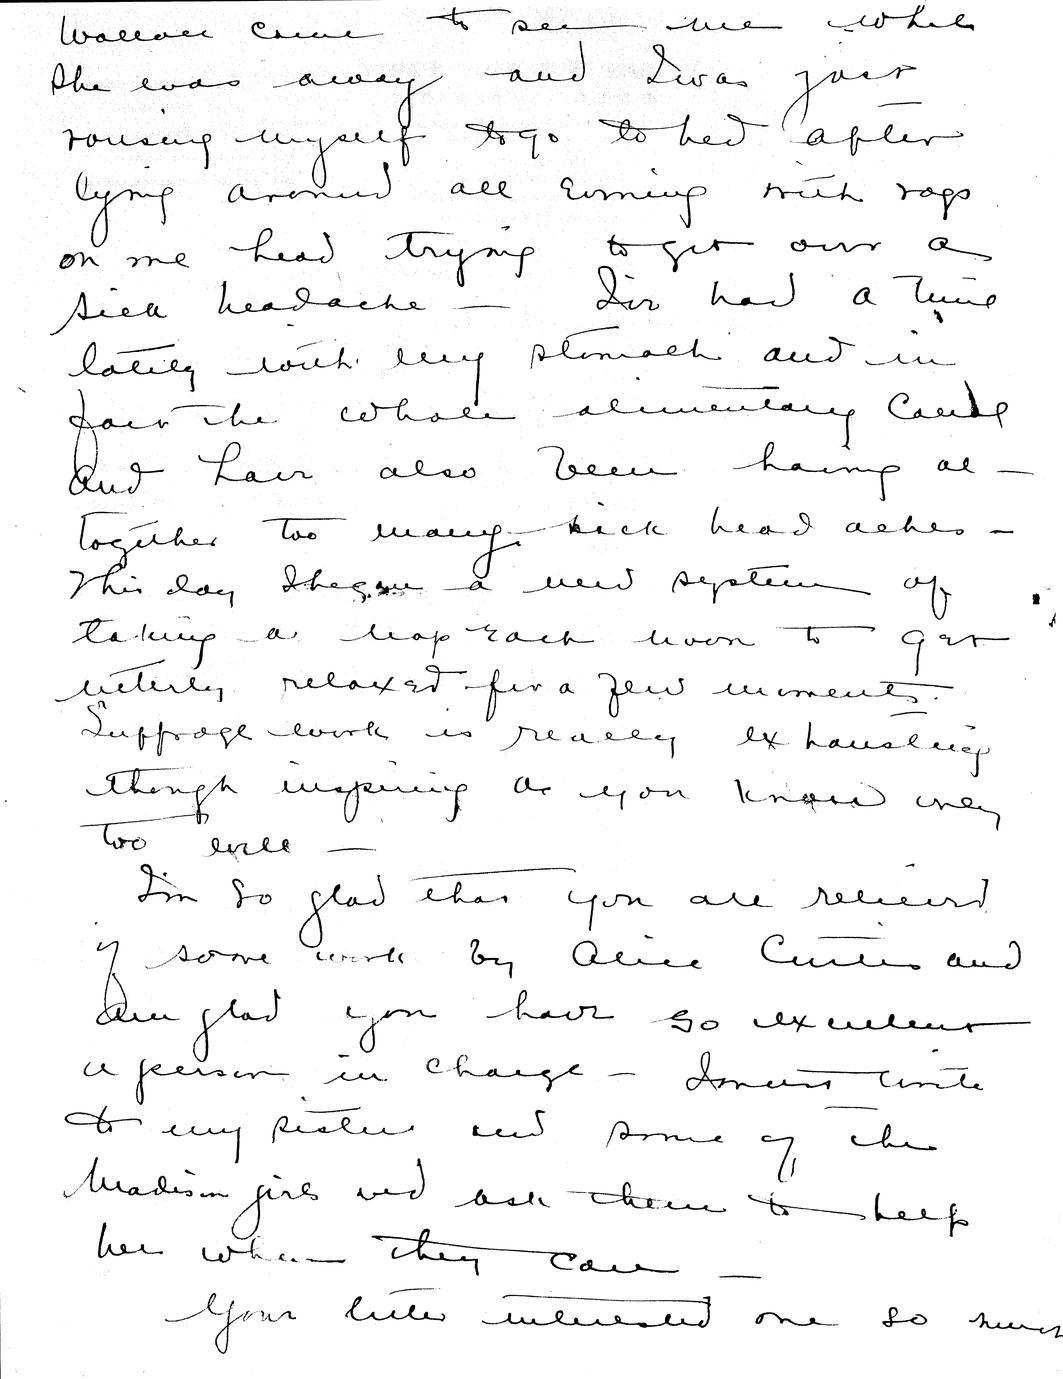 Wallace came to see me while
she was away and I was just
rousing myself to go to bed after
lying around all evening with rags
on me head trying to get over a
sick headache — I've had a time
lately with my stomach and in
fact the whole alimentary Canal
and have also been having al-
together too many sick head aches -
This day I began a new system of
taking a nap each noon to get
utterly relaxed for a few moments.
Suffrage work is really exhausting
though inspiring as you know only
too well —
I'm so glad that you are relieved
of some work by Alice Curtis and
am glad you have so excellent
a person in charge - I must write
to my sister and some of the
Madison girls and ask them to help
her when they can —
Your letter interested me so much